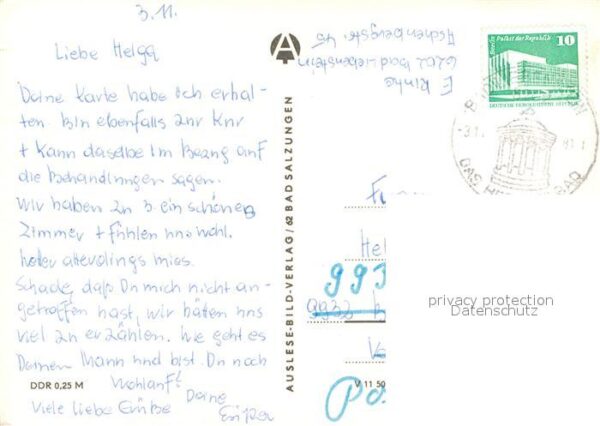 3.11.
Liebe Helga
Deine Karte habe ich erhal-
ten. Bin ebenfalls zur Kur
+ kann dasselbe im Bezug auf
die Behandlungen sagen.
Wir haben zu 3 ein schönes
Zimmer + fühlen uns wohl.
Wetter allerdings mies.
Schade, daß Du mich nicht an-
getroffen hast, wir hätten uns
viel zu erzählen. Wie geht es
Deinem Mann und bist Du noch
wohlauf?
Viele liebe Grüße
Deine
DDR 0,25 M
AUSLESE-BILD-VERLAG / 62 BAD SALZUNGEN
V 11 50
E.
6202 Bad Liebenstein
Aschenbergstr. 45
Berlin Palast der Republik
10
DEUTSCHE DEMOKRATISCHE REPUBLIK
-3.1
81-1
DAS HE BAD
Hel
993
9932
privacy protection
Datenschutz